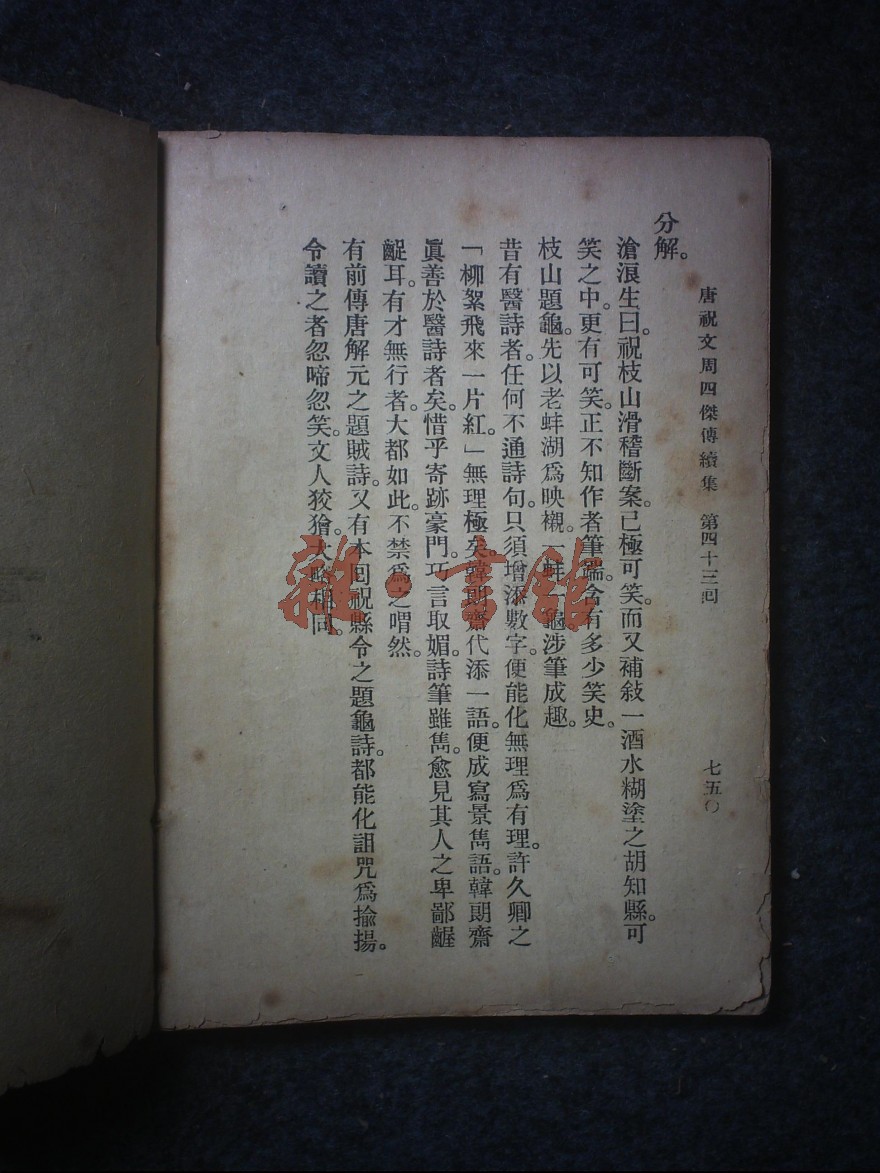 唐祝文周四傑傳續集　第四十三回　七五〇
分解。
滄浪生曰。祝枝山滑稽斷案。已極可笑。而又補敍一酒水糊塗之胡知縣。可
笑之中。更有可笑。正不知作者筆端。含有多少笑史。
枝山題龜。先以老蚌湖爲映襯。一蚌一龜。涉筆成趣。
昔有醫詩者。任何不通詩句。只須增添數字。便能化無理爲有理。許久卿之
「柳絮飛來一片紅。」無理極矣。韓朗齋代添一語。便成寫景雋語。韓朗齋
眞善於醫詩者矣。惜乎寄跡豪門。巧言取媚。詩筆雖雋。愈見其人之卑鄙齷
齪耳。有才無行者。大都如此。不禁爲之喟然。
有前傳唐解元之題賊詩。又有本回祝縣令之題龜詩。都能化詛咒爲揄揚。
令讀之者忽啼忽笑。文人狡獪。大略相同。
雜·書館